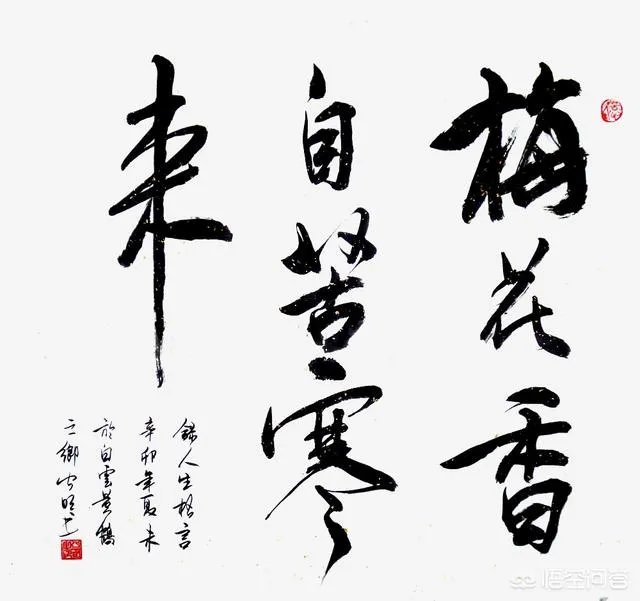 梅花香
自苦寒
来
録人生格言
辛卯年夏末
於白雲黄鶴
之鄉
悟空问答